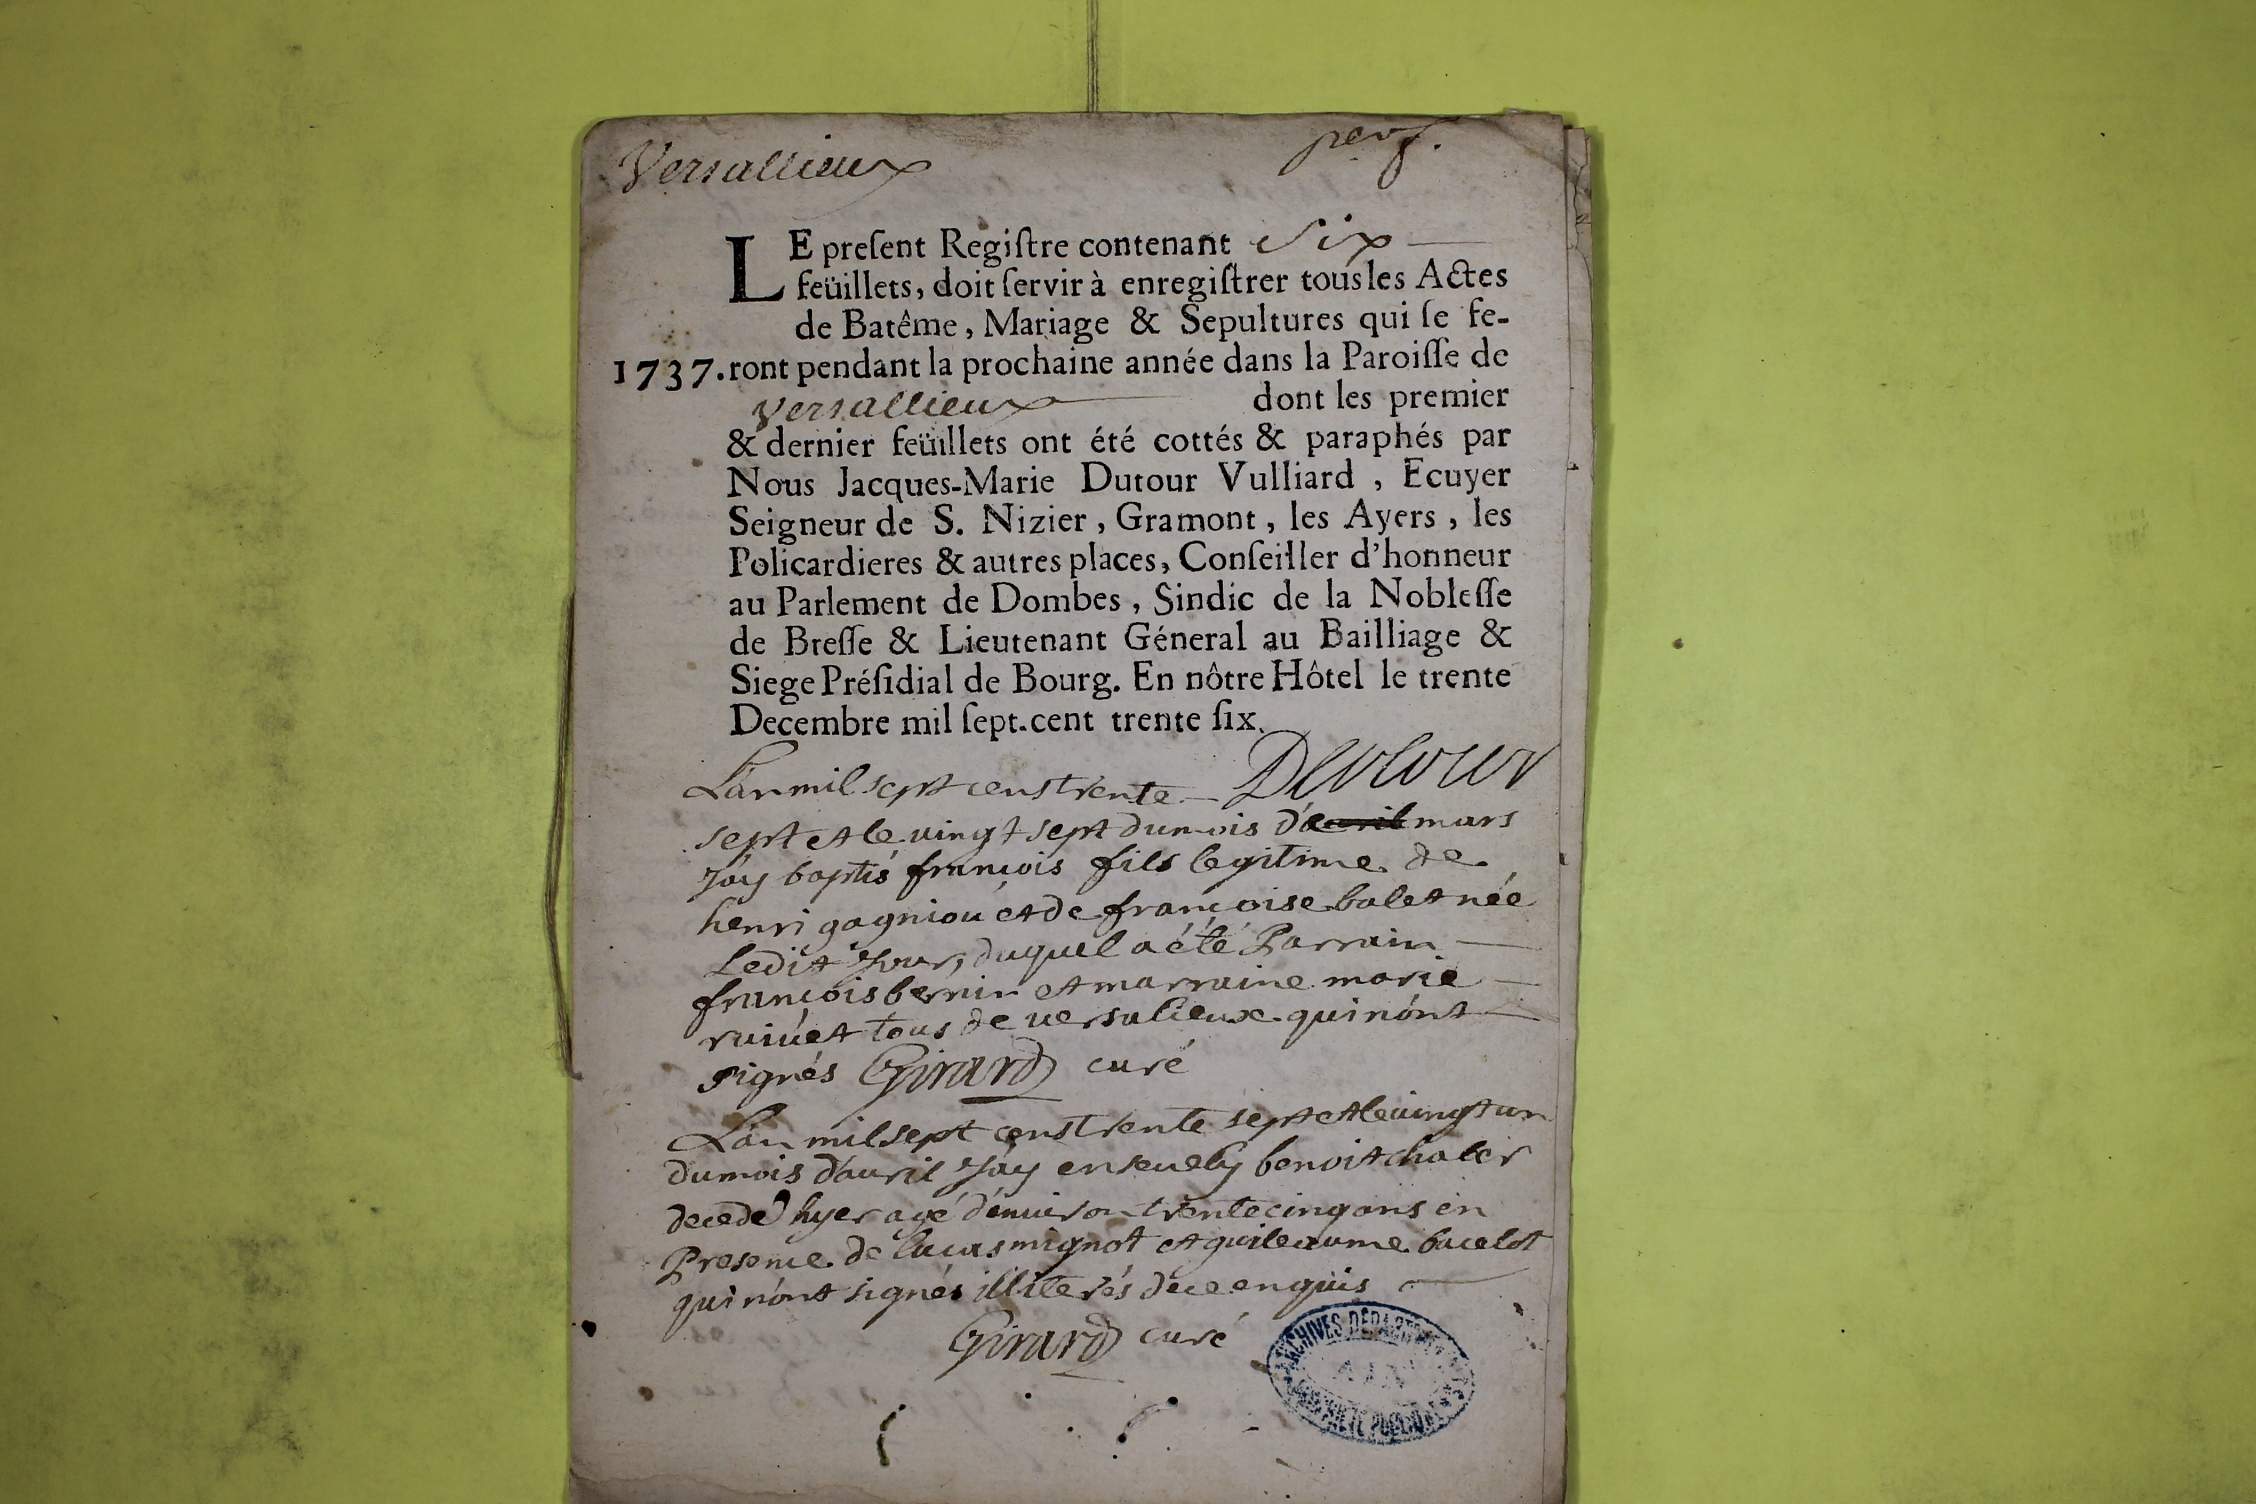 Versallieux
LE preſent Regiſtre contenant six
feüillets, doit ſervir à enregiſtrer tous les Actes
de Batême, Mariage & Sepultures qui ſe fe-
1737. ront pendant la prochaine année dans la Paroiſſe de
Versallieux dont les premier
& dernier feüillets ont été cottés & paraphés par
Nous Jacques-Marie Dutour Vulliard, Ecuyer
Seigneur de S. Nizier, Gramont, les Ayers, les
Policardieres & autres places, Conſeiller d'honneur
au Parlement de Dombes, Sindic de la Nobleſſe
de Breſſe & Lieutenant Géneral au Bailliage &
Siege Préſidial de Bourg. En nôtre Hôtel le trente
Decembre mil ſept.cent trente ſix.
L'an mil sept cens trente
sept et le vingt sept du mois d'avril mars
J'ay baptisé françois fils legitime de
henri gagniou et de françoise balet née
Ledit Jour, duquel a été Parrain
françois bernin et marraine marie
ruivet tous de versalieux qui n'ont
signés Girard curé
L'an mil sept cens trente sept et le vingt un
du mois d'avril J'ay ensevely benoit chaler
decedé hyer agé d'environ trente cinq ans en
Presence de lucas mignot et guileaume bacelot
qui n'ont signés illiterés de ce enquis
Girard curé
ARCHIVES DÉPARTEMENTALES
AIN
PROPRIÉTÉ PUBLIQUE